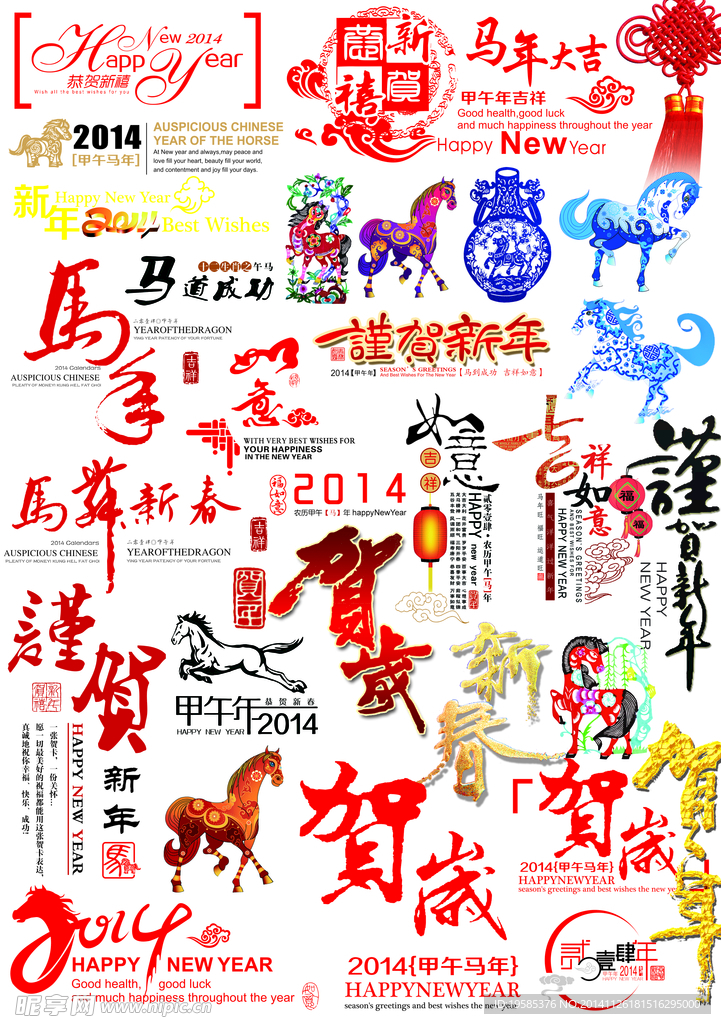 Happy New 2014 Year
恭贺新禧
Wish all the best wishes for you
恭贺新禧
马年大吉
甲午年吉祥
Good health,good luck
and much happiness throughout the year
Happy New Year
2014
[甲午马年]
AUSPICIOUS CHINESE
YEAR OF THE HORSE
At New year and always,may peace and
love fill your heart, beauty fill your world,
and contentment and joy fill your days.
新年
Happy New Year
2014
Best Wishes
十二生肖之午马
马道成功
馬年
二零壹肆〇甲午年
YEAROFTHEDRAGON
YING YEAR PATENCY OF YOUR FORTUNE.
2014 Calendars
AUSPICIOUS CHINESE
PLEATY OF MONEY! KUNG HEI, FAT CHO
吉祥
如意
吉祥
WITH VERY BEST WISHES FOR
YOUR HAPPINESS
IN THE NEW YEAR
謹賀新年
2014【甲午年】
SEASON'S GREETINGS
And Best Wishes For The New Year
【马到成功 吉祥如意】
如意
吉祥
HAPPY new year
贰零壹肆·农历甲午【马】年
吉祥如意
SEASON'S GREETINGS
AND BEST WISHES FOR
HAPPY NEW YEAR
马年旺 福旺 运道旺
福
福
謹賀新年
HAPPY
NEW YEAR
馬舞新春
2014 Calendars
AUSPICIOUS CHINESE
PLEATY OF MONEY! KUNG HEI, FAT CHO
二零壹肆〇甲午年
YEAROFTHEDRAGON
YING YEAR PATENCY OF YOUR FORTUNE.
吉祥
福如意
2014
农历甲午【马】年 happyNewYear
賀年
賀歲
謹賀
新年
HAPPY NEW YEAR
一张贺卡，一份关怀…
愿一切最美好的祝福都能用这张贺卡表达，
真诚地祝你幸福、快乐、成功！
甲午年
恭贺新春
HAPPY NEW YEAR
2014
新春
賀歲
2014{甲午马年}
HAPPYNEWYEAR
season's greetings and best wishes the new year
賀歲
2014{甲午马年}
HAPPYNEWYEAR
season's greetings and best wishes the new year
賀年
2014
HAPPY NEW YEAR
Good health, good luck
and much happiness throughout the year
贰〇壹肆年
甲午年
2014
HAPPY NEW YEAR
昵享网 www.nipic.cn